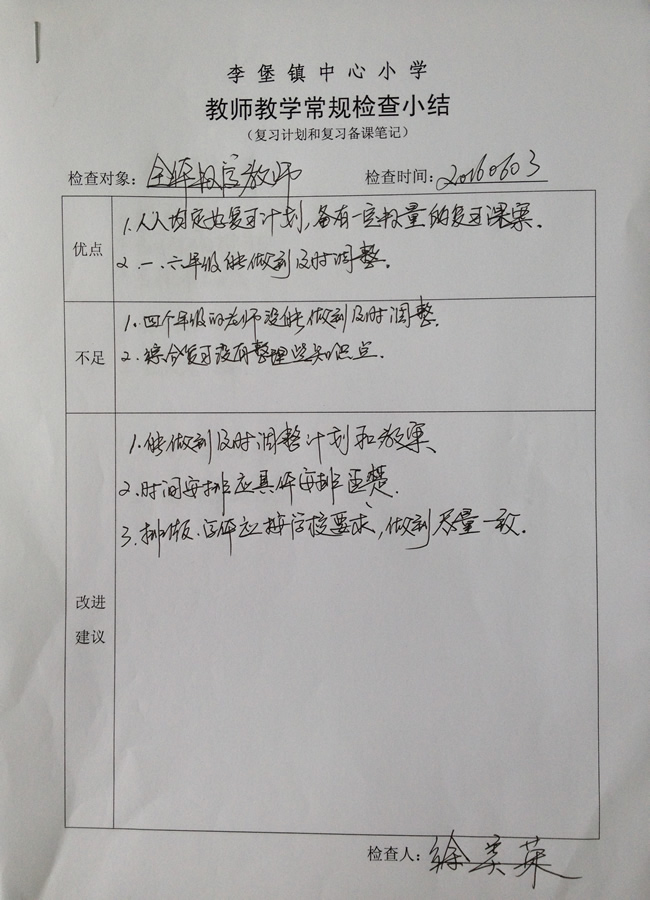 李堡镇中心小学
教师教学常规检查小结
（复习计划和复习备课笔记）
检查对象：全体数学教师 检查时间：20160603
优点
1.人人均定好复习计划，备有一定数量的复习课案。
2.一、六年级能做到及时调整。
不足
1.四个年级的老师没能做到及时调整。
2.综合复习没有整理些知识点.
改进
建议
1.能做到及时调整计划和教案
2.时间安排应具体安排清楚.
3.排版、字体应按学校要求，做到尽量一致.
检查人：徐奕莱